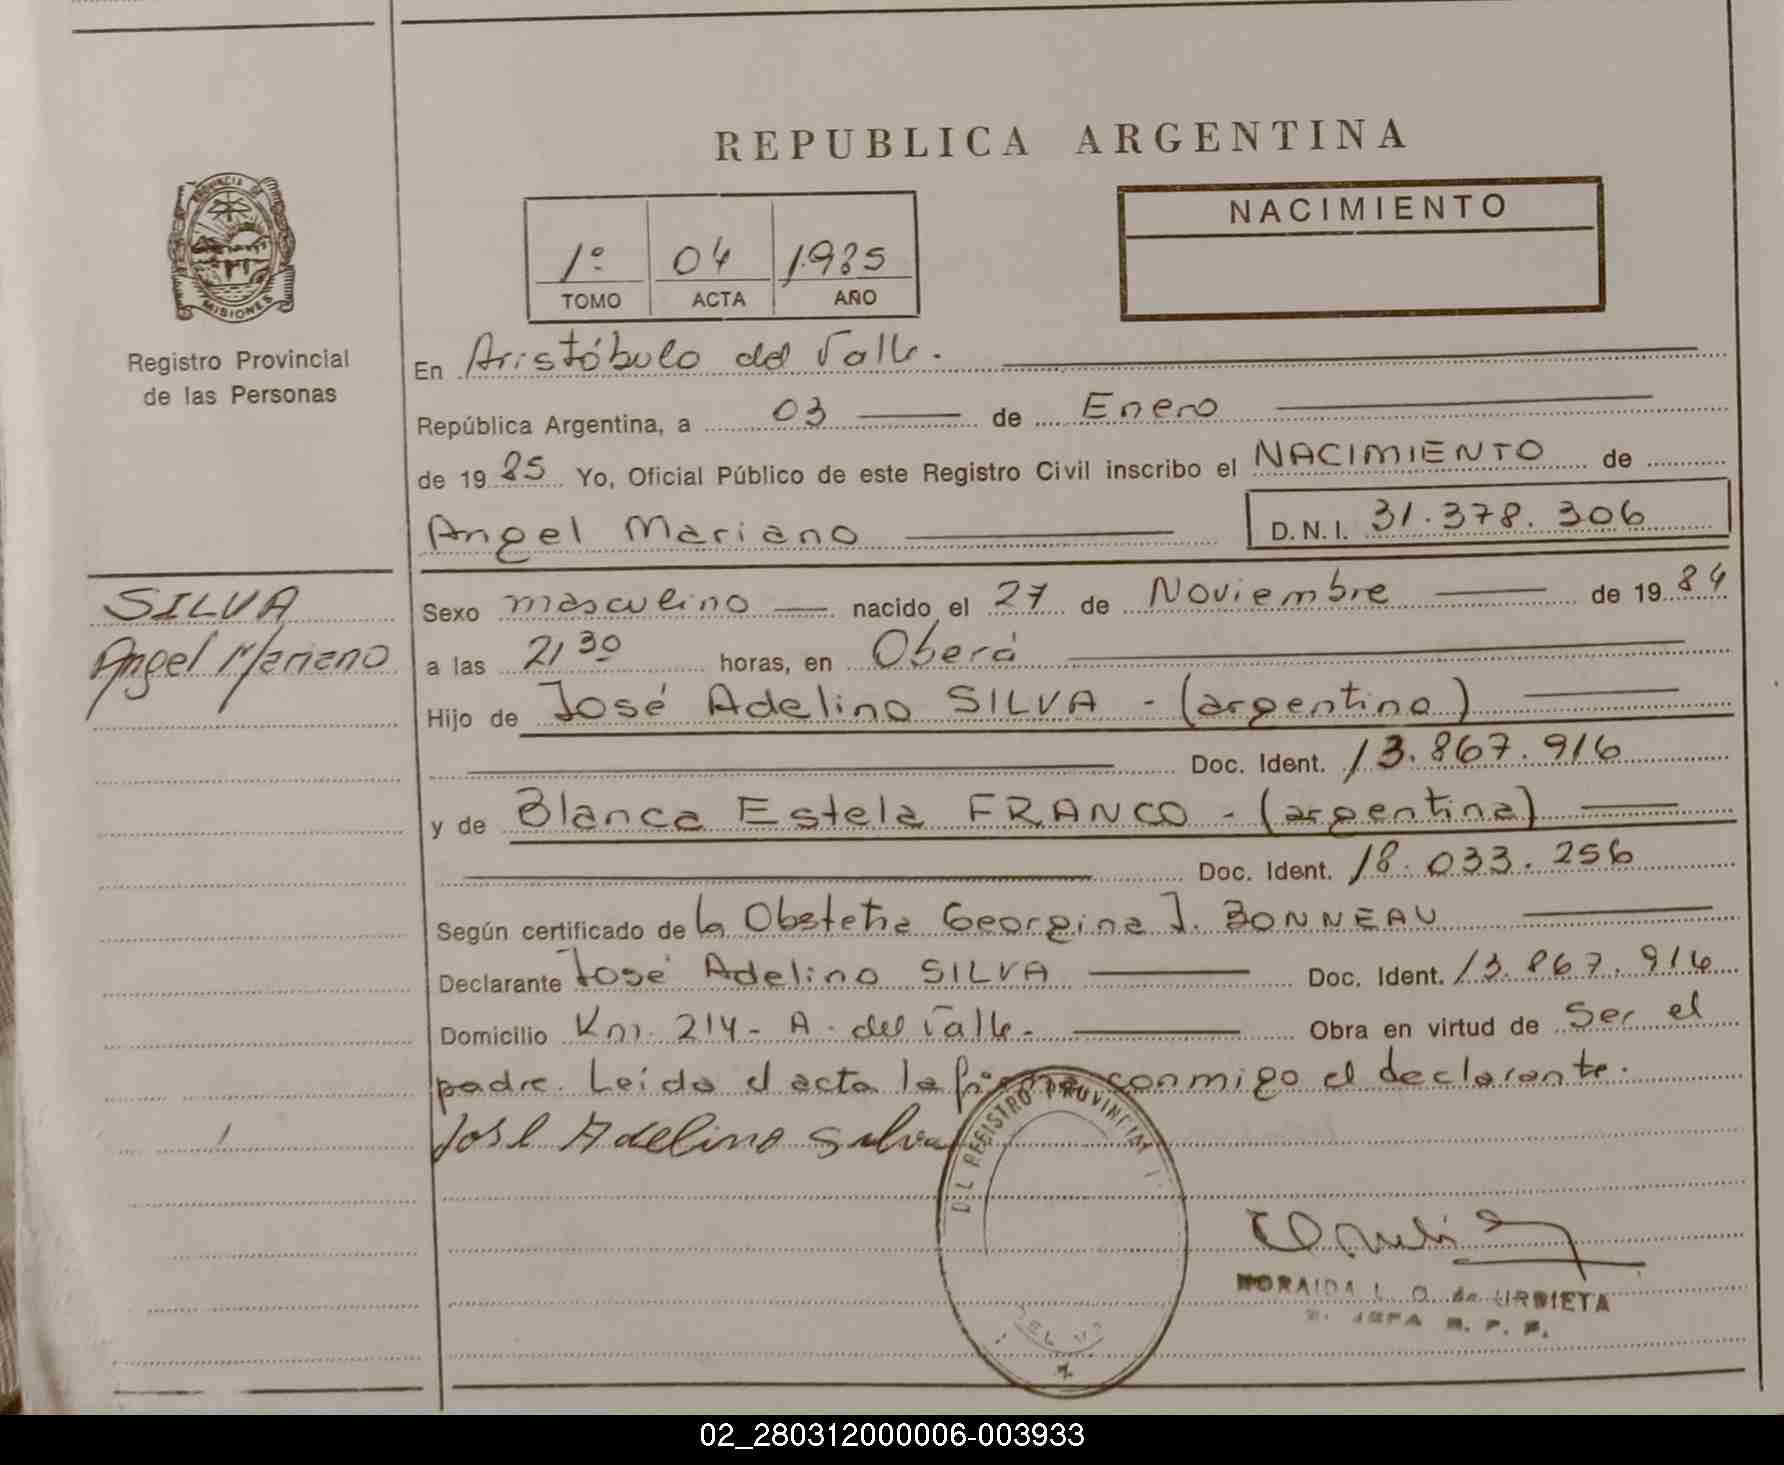 REPUBLICA ARGENTINA
PROVINCIA DE
MISIONES
Registro Provincial
de las Personas
1º 04 1985
TOMO ACTA AÑO
NACIMIENTO
En Aristóbulo del Valle.
República Argentina, a 03 de Enero
de 1985 Yo, Oficial Público de este Registro Civil inscribo el NACIMIENTO de
Angel Mariano D.N.I. 31.378.306
SILVA
Angel Mariano
Sexo masculino nacido el 27 de Noviembre de 1984
a las 21 30 horas, en Oberá
Hijo de José Adelino SILVA - (argentino)
Doc. Ident. 13.867.916
y de Blanca Estela FRANCO - (argentina)
Doc. Ident. 18.033.256
Según certificado de la Obstetra Georgina J. BONNEAU
Declarante José Adelino SILVA Doc. Ident. 13.867.916
Domicilio Km. 214 - A. del Valle - Obra en virtud de Ser el
padre. Leída el acta la firma conmigo el declarante.
José Adelino Silva
DEL REGISTRO PROVINCIAL
NORAIDA L. O. de URDIETA
JEFA R. P. P.
02_280312000006-003933